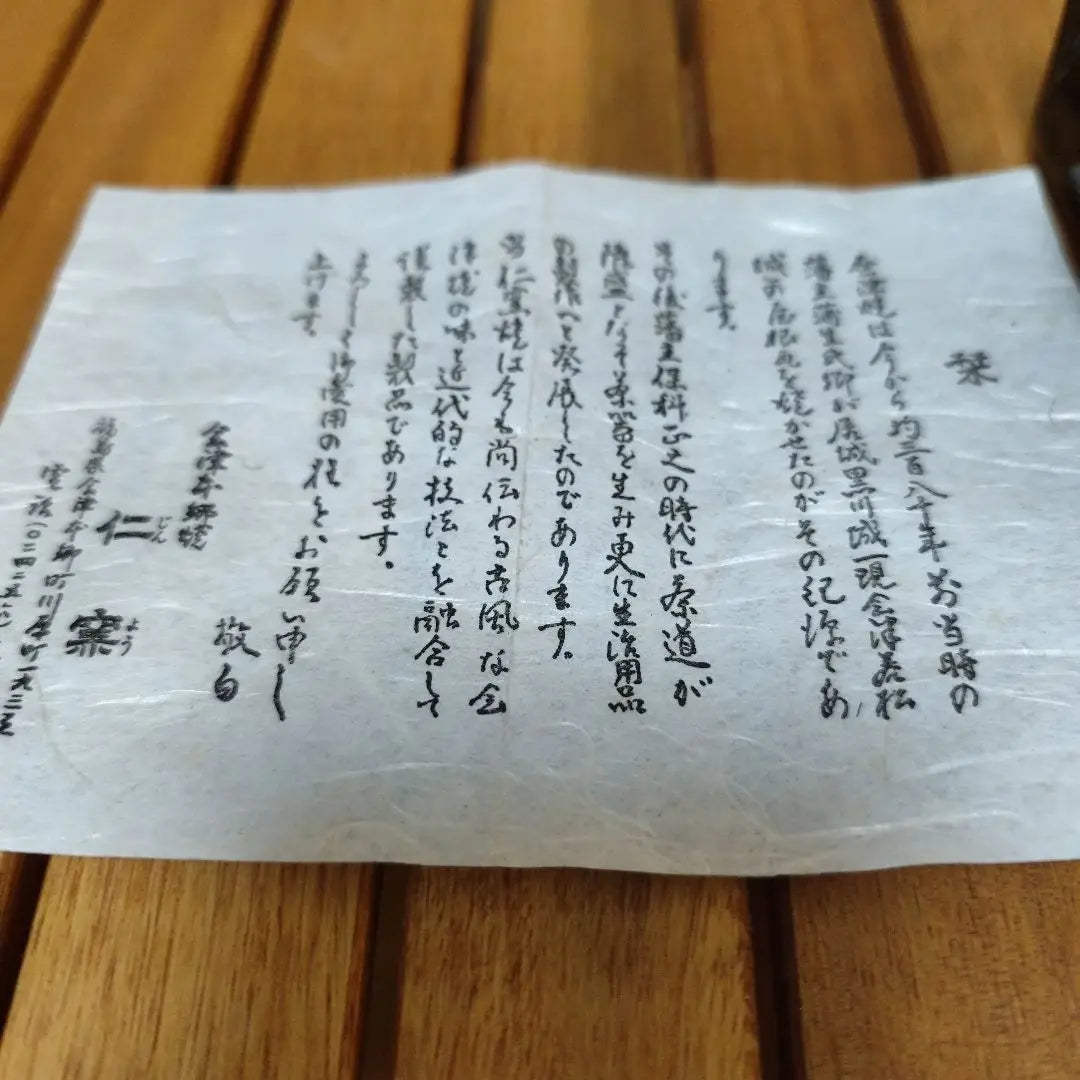 栞
会津焼は今から約三百八十年前当時の
藩主蒲生氏郷が居城黒川城一現会津若松
城の屋根瓦を焼かせたのがその紀源であ
ります。
その後藩主保科正之の時代に茶道が
隆盛となり茶器を生み更に生活用品
の製作へと発展したのであります。
当仁窯焼は今も尚伝わる古風な会
津焼の味と近代的な技法とを融合して
謹製した製品であります。
よろしく御愛用の程をお願い申し
上げます。
敬白
会津本郷焼
仁窯
じんよう
福島県会津本郷町川原町一九三二
電話(〇二四二五六)